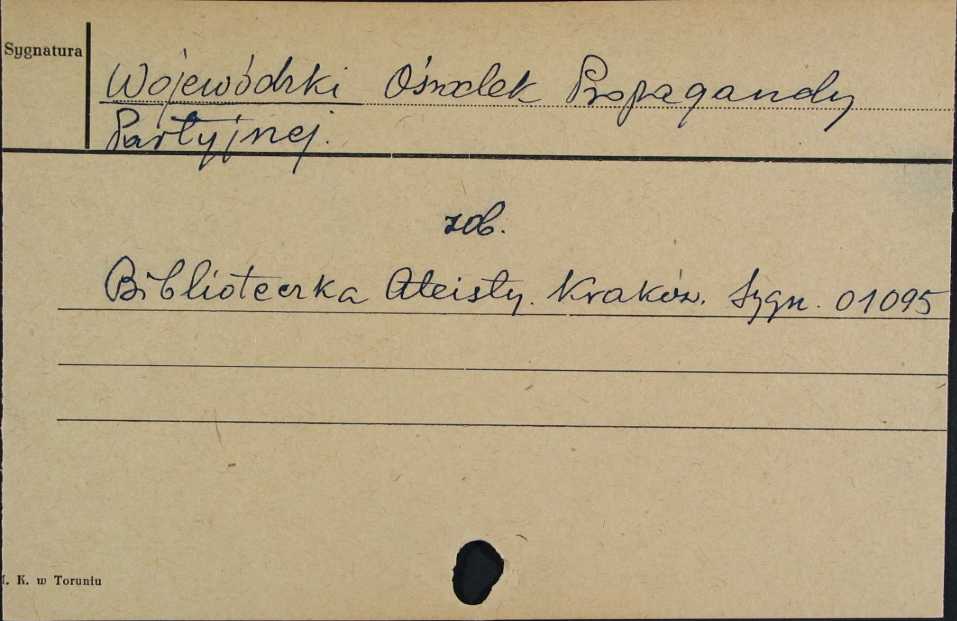 Sygnatura
Wojewódzki Ośrodek Propagandy
Partyjnej.
zob.
Biblioteczka Ateisty. Kraków. Sygn. 01095
K. w Toruniu